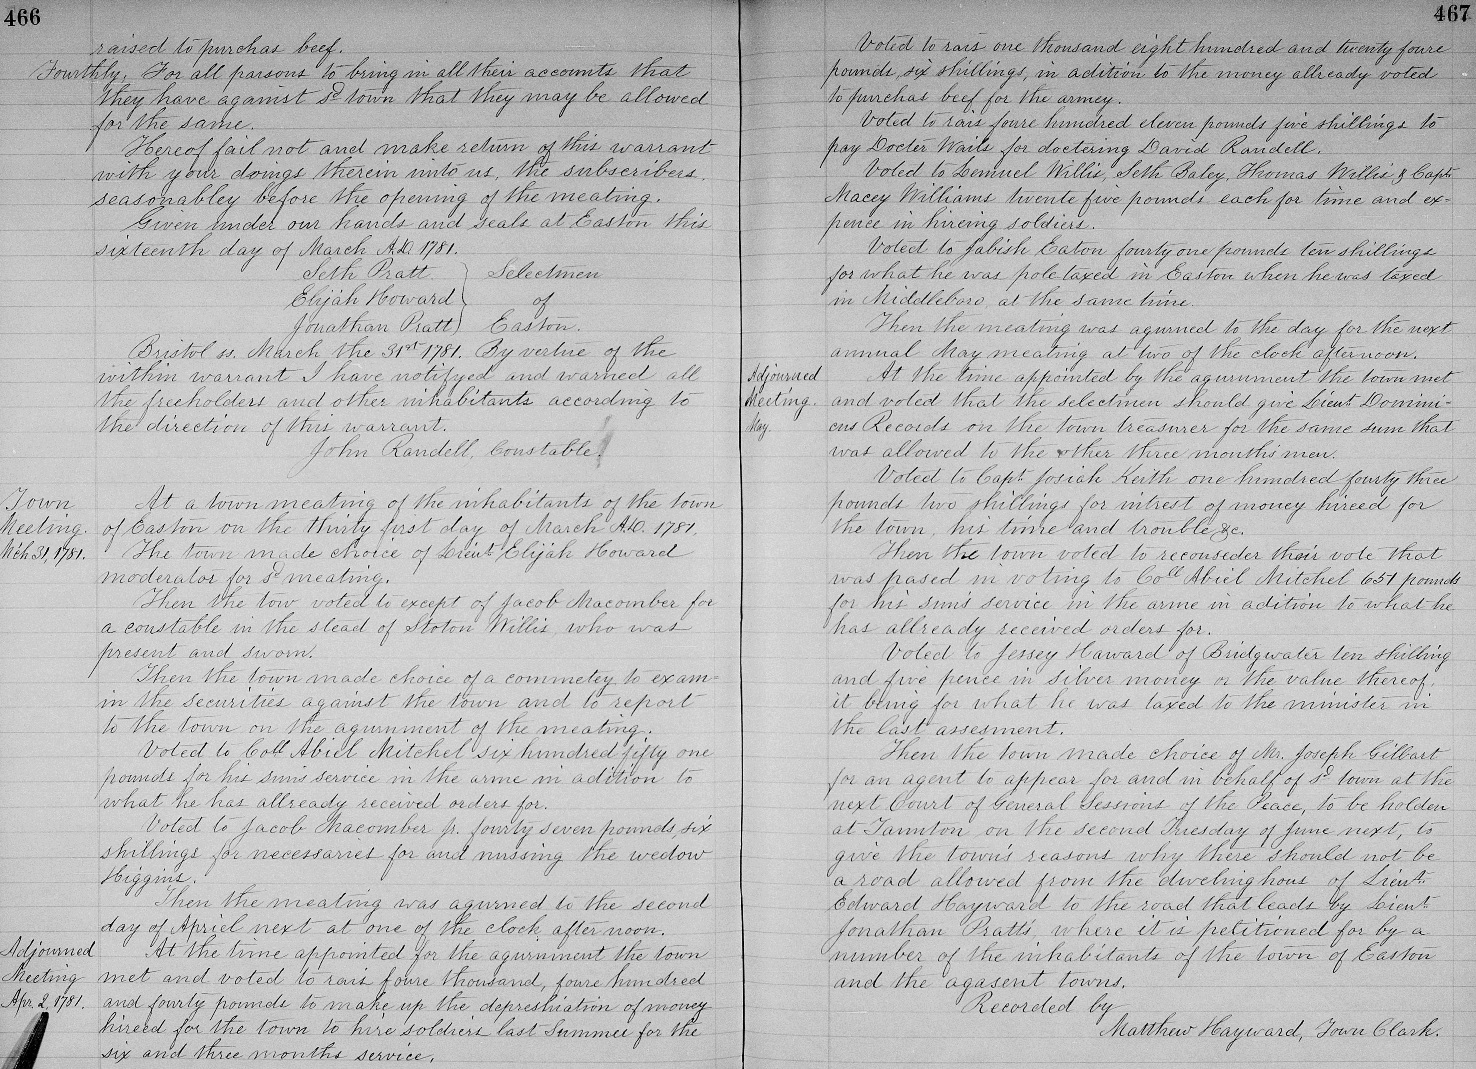 466
raised to purchas beef.
Fourthly, For all parsons to bring in all their accounts that
they have against sd town that they may be allowed
for the same.
Hereof fail not and make return of this warrant
with your doings therein unto us, the subscribers,
seasonabley before the opening of the meating.
Given under our hands and seals at Easton this
sixteenth day of March A.D. 1781.
Seth Pratt } Selectmen
Elijah Howard } of
Jonathan Pratt } Easton.
Bristol ss. March the 31st 1781. By vertue of the
within warrant I have notifyed and warned all
the freeholders and other inhabitants according to
the direction of this warrant.
John Randell, Constable.
Town
Meeting.
M'ch 31, 1781.
At a town meating of the inhabitants of the town
of Easton on the thirty first day of March A.D. 1781.
The town made choice of Lieut Elijah Howard
moderator for sd meating.
Then the tow voted to except of Jacob Macomber for
a constable in the stead of Stoton Willis, who was
present and sworn.
Then the town made choice of a commetey to exam=
in the securities against the town and to report
to the town on the agurnment of the meating.
Voted to Coll Abiel Mitchel six hundred fifty one
pounds for his sun's service in the arme in adition to
what he has allready received orders for.
Voted to Jacob Macomber jr. fourty seven pounds, six
shillings for necessaries for and nussing the wedow
Higgins.
Then the meating was agurned to the second
day of Apriel next at one of the clock, after noon.
Adjourned
Meeting
Apr. 2, 1781.
At the time appointed for the agurnment the town
met and voted to rais foure thousand, foure hundred
and fourty pounds to make up the depreshiation of money
hireed for the town to hire soldiers last Summer for the
six and three months service.
467
Voted to rais one thousand eight hundred and twenty foure
pounds, six shillings, in adition to the money allready voted
to purchas beef for the armey.
Voted to rais foure hundred eleven pounds five shillings to
pay Docter Wails for doctering David Randell.
Voted to Lemuel Willis, Seth Baley, Thomas Willis & Capt.
Macey Williams twente five pounds each for time and ex=
pence in hireing soldiers.
Voted to Jabish Eaton fourty one pounds ten shillings
for what he was pole taxed in Easton when he was taxed
in Middleboro, at the same time.
Then the meating was agurned to the day for the next
annual May meating at two of the clock afternoon.
Adjourned
Meeting.
May.
At the time appointed by the agurnment the town met
and voted that the selectmen should give Lieut Domini-
cus Records on the town treasurer for the same sum that
was allowed to the other three months men.
Voted to Capt. Josiah Keith one hundred fourty three
pounds two shillings for intrest of money hireed for
the town, his time and trouble, &c.
Then the town voted to reconseder their vote that
was pased in voting to Coll Abiel Mitchel 651 pounds
for his sun's service in the arme in adition to what he
has allready received orders for.
Voted to Jessey Haward of Bridgwater ten shilling
and five pence in silver money or the value thereof,
it being for what he was taxed to the minister in
the last assesment.
Then the town made choice of Mr. Joseph Gilbart
for an agent to appear for and in behalf of sd town at the
next Court of General Sessions of the Peace, to be holden
at Taunton on the second Tuesday of June next, to
give the town's reasons why there should not be
a road allowed from the dwelinghous of Lieut.
Edward Hayward to the road that leads by Lieut
Jonathan Pratts, where it is petitioned for by a
number of the inhabitants of the town of Easton
and the agasent towns.
Recorded by
Matthew Hayward, Town Clark.